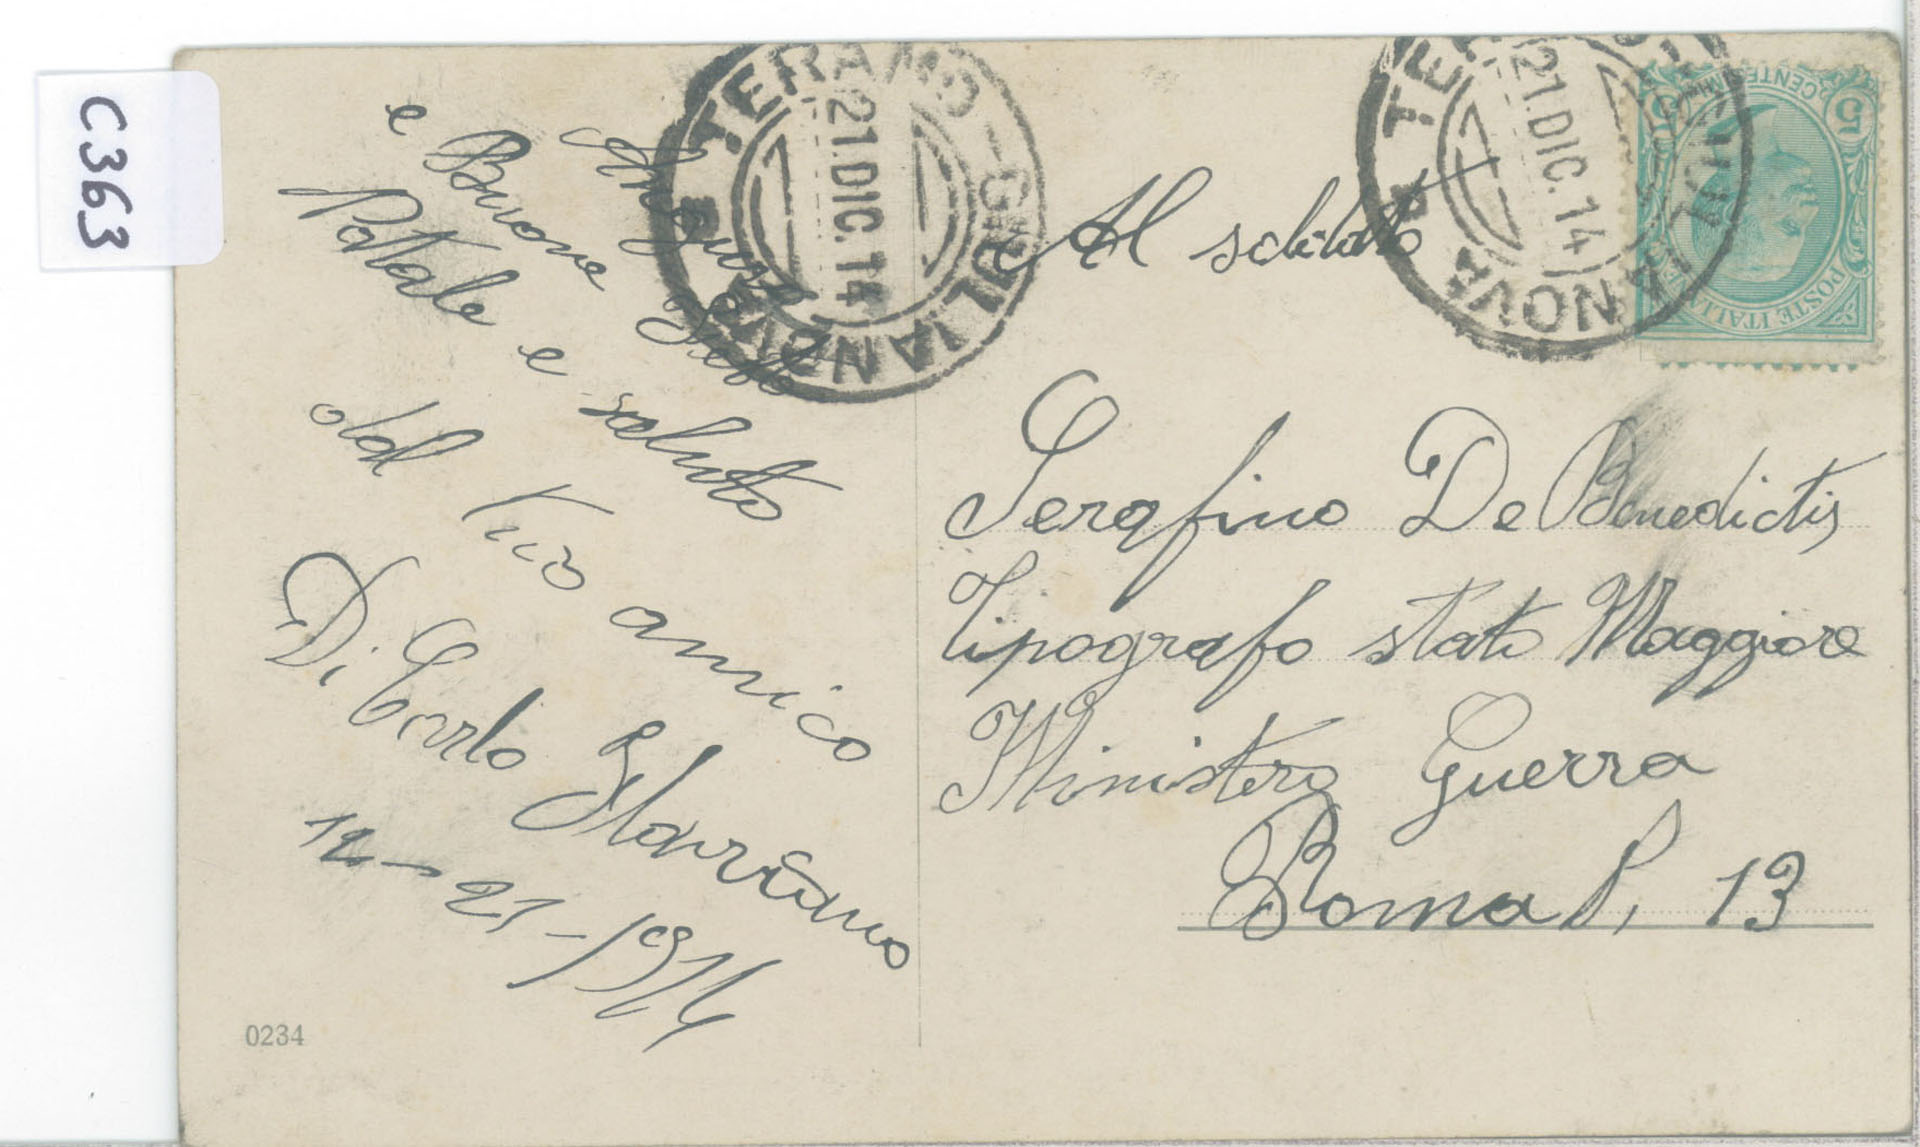 C363
Auguri
e Buone Feste
Natale e saluto
dal tuo amico
Di Carlo Flaviano
12-21-1914
0234
TERAMO - GIULIANOVA
21.DIC.14
Al soldato
Serafino De Benedictis
tipografo stato Maggiore
Ministero Guerra
Roma P, 13
GIULIANOVA
21.DIC.14
POSTE ITALIANE
CENTESIMI
5